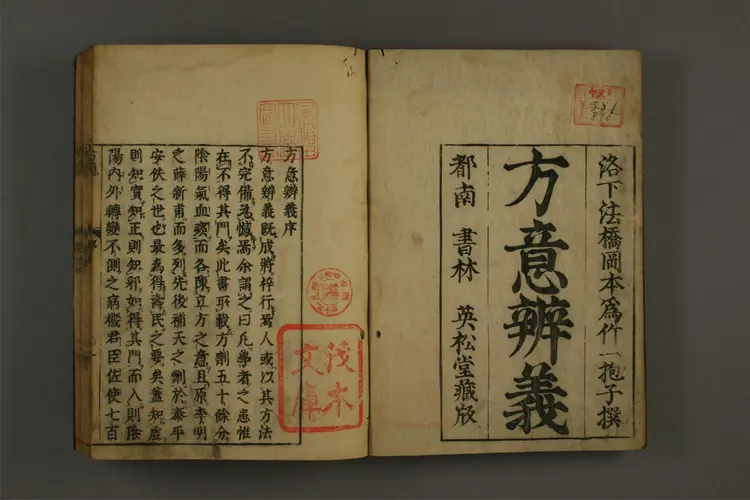 洛下法橋岡本爲竹一抱子撰
方意辨義
都南 書林 英松堂藏版
方意辨義序
方意辨義既成將梓行焉人或以其方法
不完備爲憾焉余謂之曰凡學者之患惟
在不得其門矣此書所載方劑五十餘分
陰陽氣血痰而各陳立方之意且原李明
之薛新甫而多列先後補天之劑於泰平
安佚之世也最爲得壽民之要矣蓋知虛
則知實知正則知邪如得其門而入則陰
陽内外轉變不測之病機君臣佐使七百
茂木
文庫